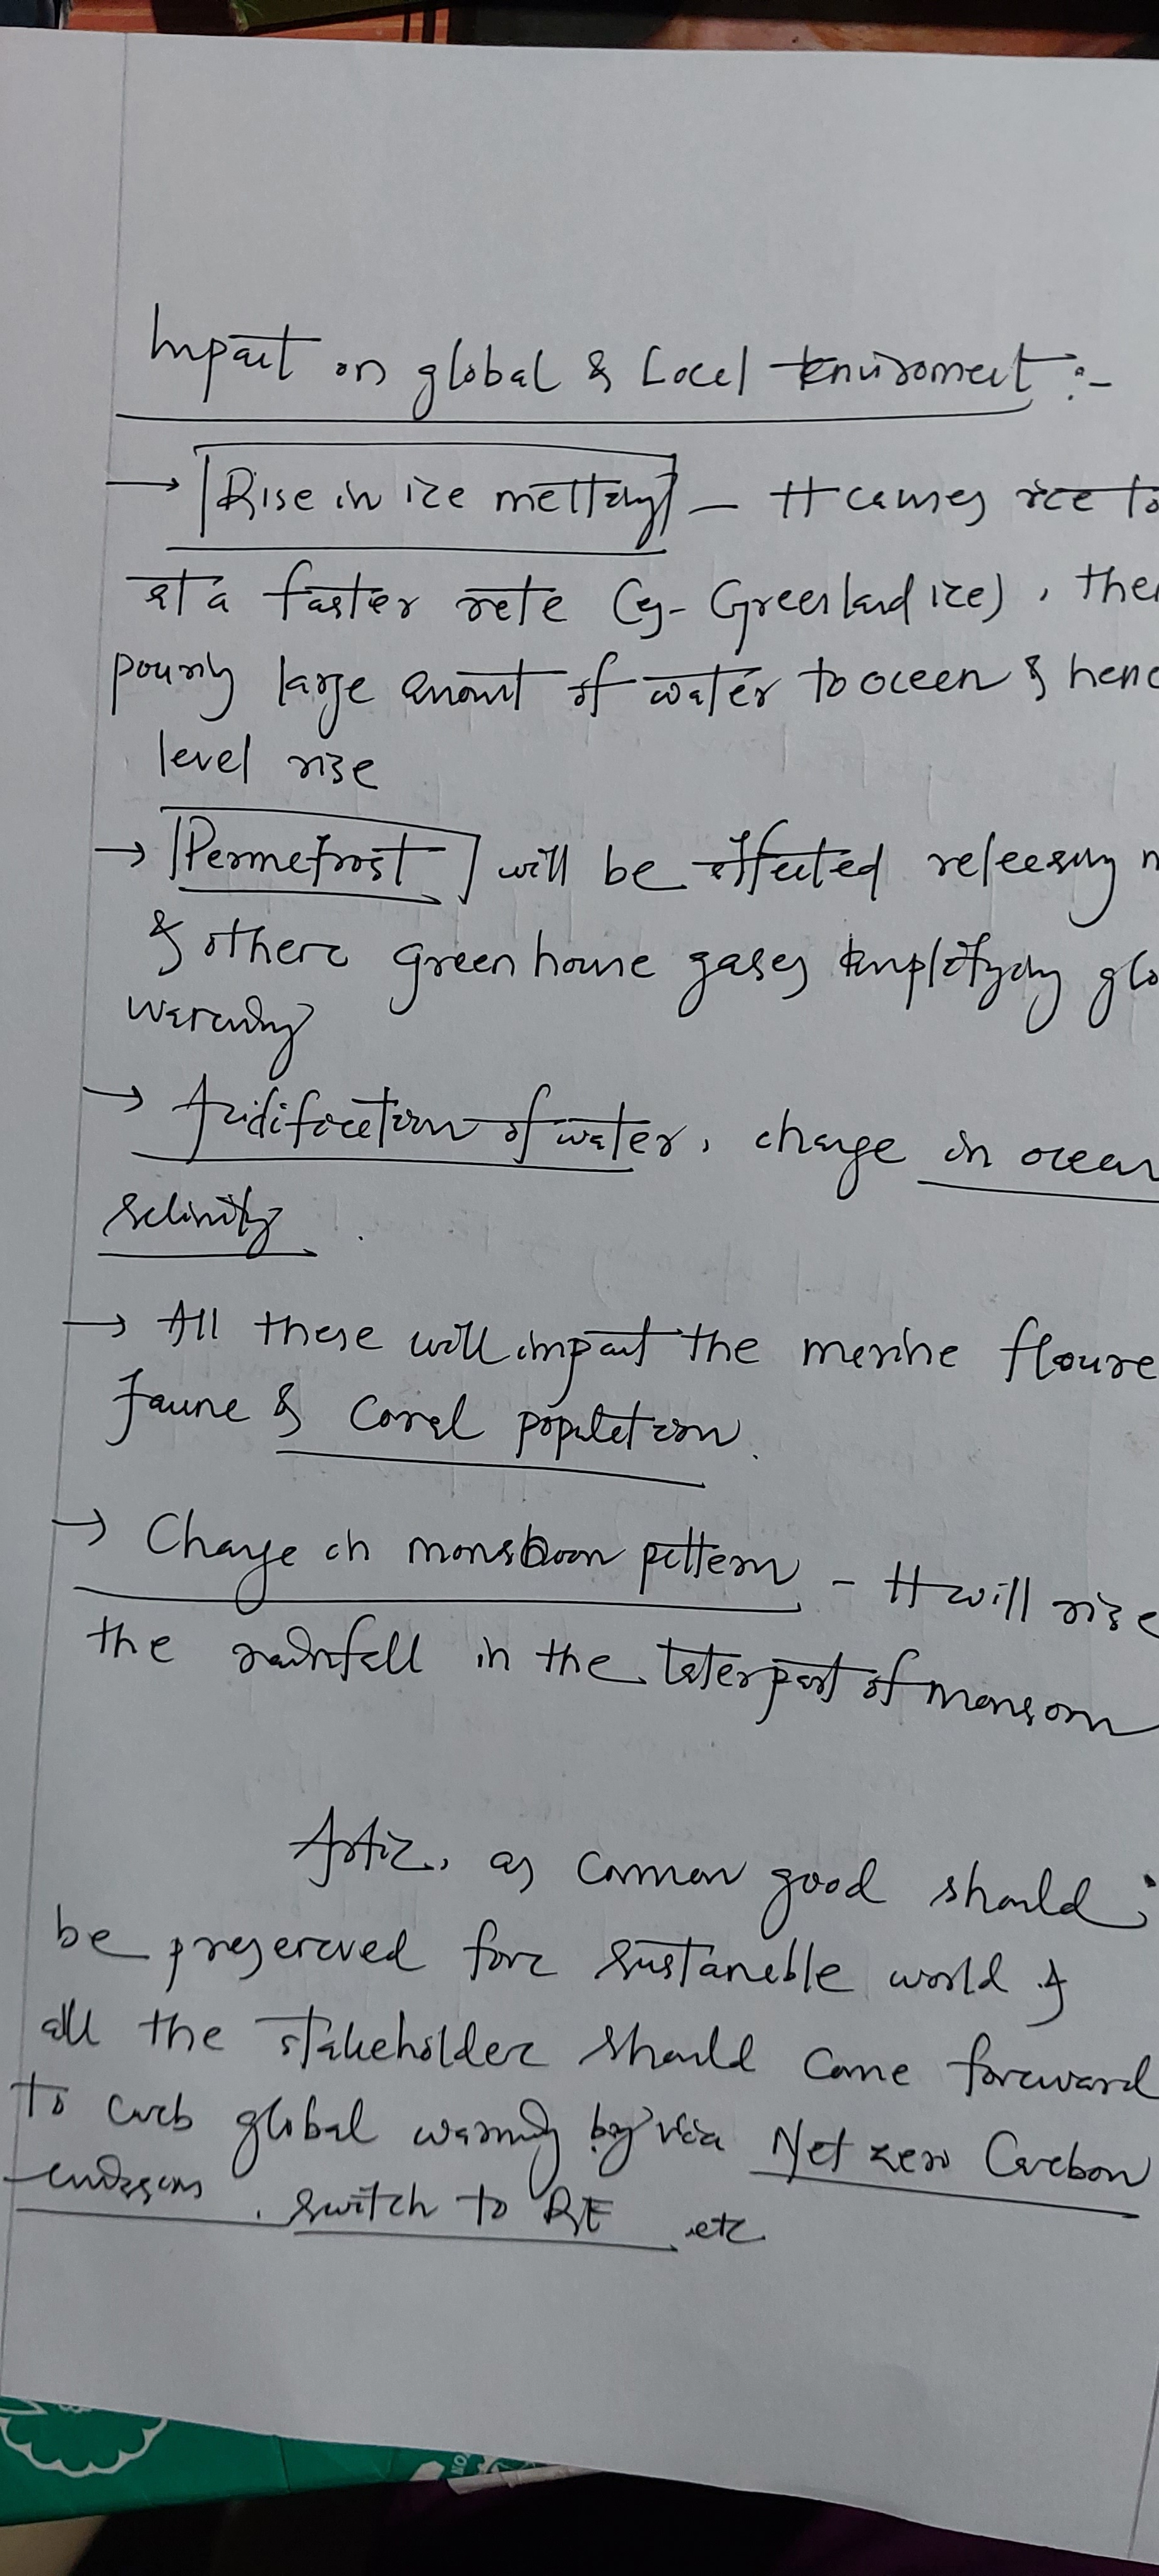 Impact on global & Local Enviroment :-
→ Rise in ice melting – It causes ice to
at a faster rate (eg- Greenland ice), the
pouring large amount of water to ocean & henc
level rise
→ Permafrost will be effected releasing m
& other greenhouse gases amplifying glo
warming
→ Acidification of water, change in ocean
salinity.
→ All these will impact the marine floura
fauna & coral population.
→ Change in monsoon pattern – It will rise
the rainfall in the later part of monsoon
Artic, as common good should
be preserved for sustaneble world &
all the stakeholder should come forward
to curb global warming by via Net zero Carbon
emission, switch to RE etc